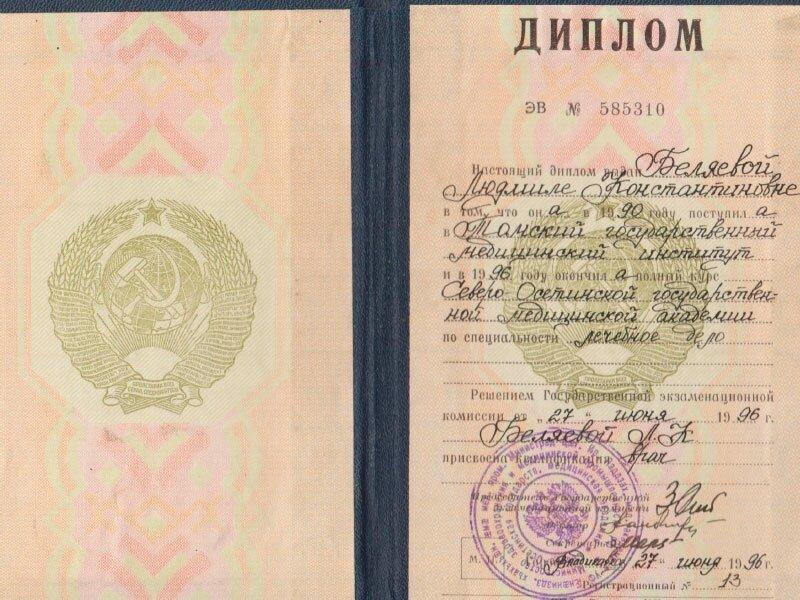 ДИПЛОМ
ЭВ № 585310
Настоящий диплом выдан Беляевой
Людмиле Константиновне
в том, что он а в 1990 году поступил а
в Томский государственный
медицинский институт
и в 1996 году окончил а полный курс
Северо-Осетинской государствен-
ной медицинской академии
по специальности лечебное дело
Решением Государственной экзаменационной
комиссии от „27“ июня 1996 г.
Беляевой Л. К
присвоена квалификация врач
Председатель Государственной
экзаменационной комиссии
Ректор
Секретарь
М. 27 июня 1996 г.
Регистрационный № 13